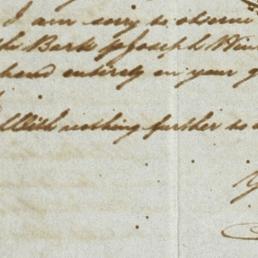 I am sorry to observe
the Bark Joseph
hand entirely on your
With nothing further to